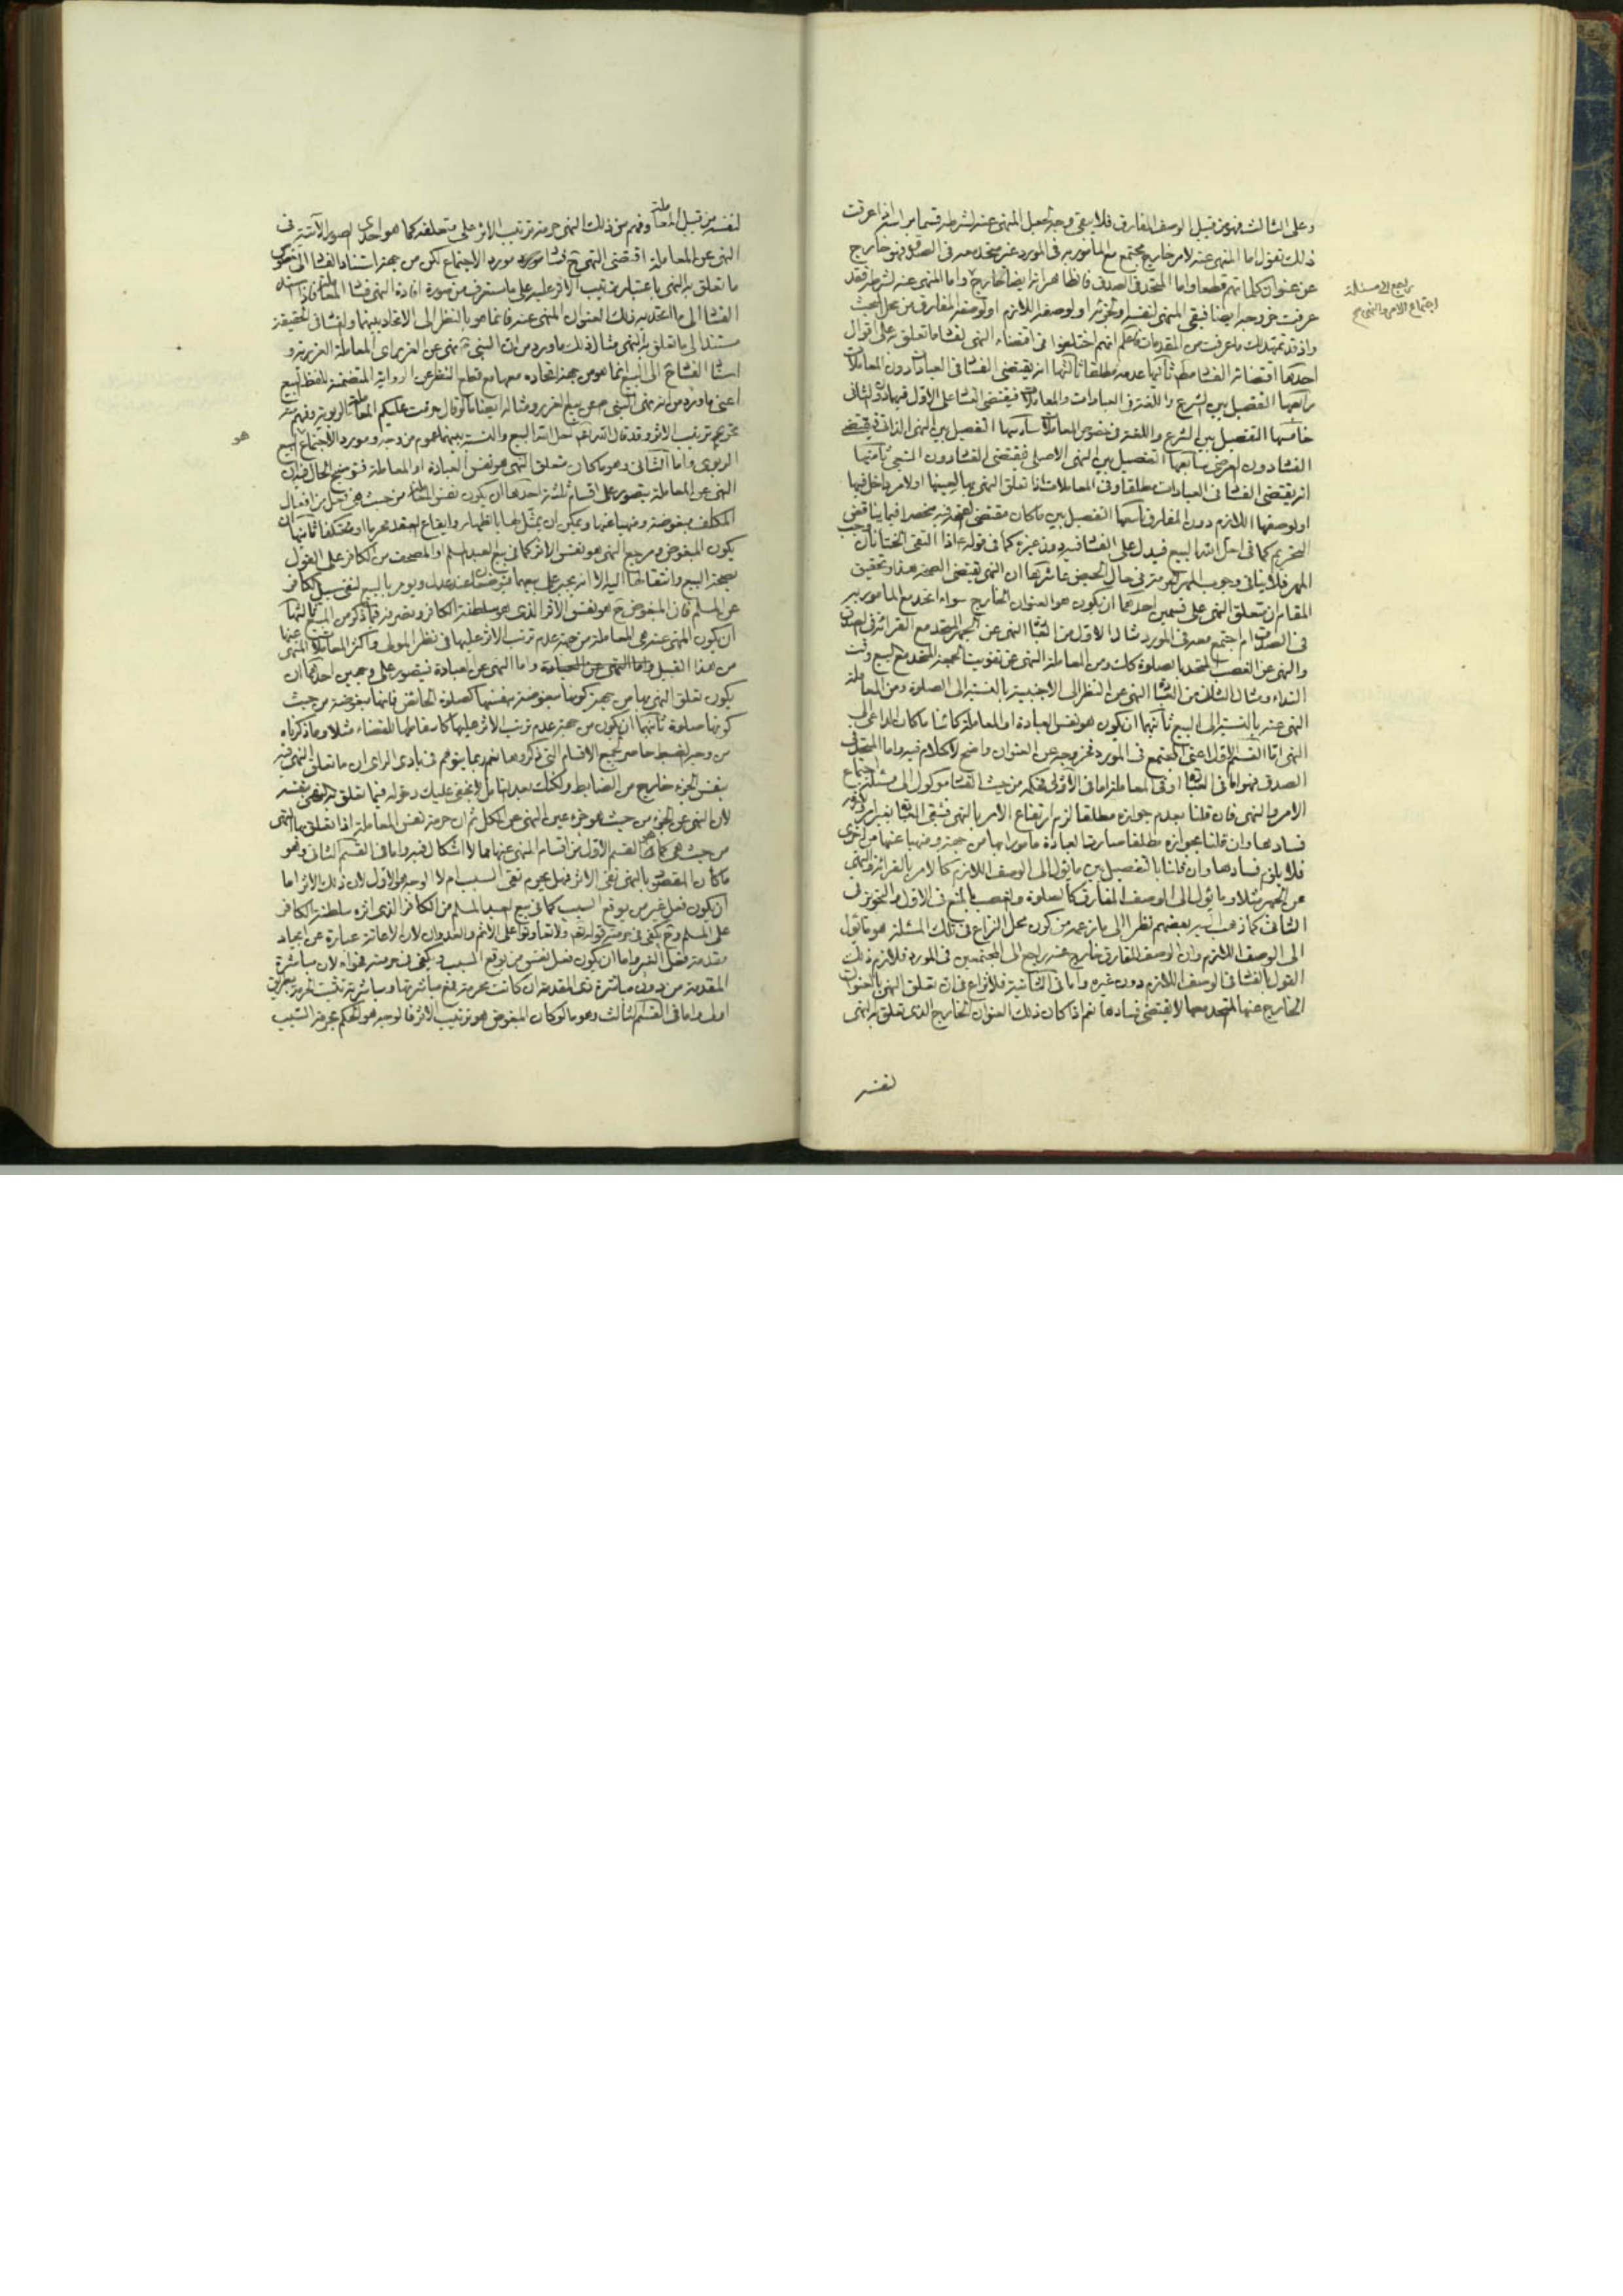 وعلى الثالث فهو من قبيل الوصف المفارق فلا يبقى وجه لجعل المنهي عنه لشرطه قسما براسه اذا عرفت
ذلك نقول اما المنهي عنه لامر خارج مجتمع مع المامور به في المورد غير متحد معه في الصدق فهو خارج
عن عنوان كلماتهم قطعا واما المتحد في الصدق فالظاهر انه ايضا خارج واما المنهي عنه لشرطه فقد
عرفت خروجه ايضا فبقي المنهي لنفسه او لجزئه او لوصفه اللازم او لوصفه المفارق من محل البحث
واذ قد تمهد لك ما عرفت من المقدمات فاعلم انهم اختلفوا في اقتضاء النهي لفساد ما تعلق به على اقوال
احدها اقتضائه الفساد مطلقا ثانيها عدمه مطلقا ثالثها انه يقتضي الفساد في العبادات دون المعاملات
رابعها التفصيل بين الشرع واللغة في العبادات والمعاملات فيقتضي الفساد على الاول فيهما دون الثاني
خامسها التفصيل بين الشرع واللغة في خصوص المعاملات سادسها التفصيل بين النهي الذاتي فيقتضي
الفساد دون العرضي سابعها التفصيل بين النهي الاصلي فيقتضي الفساد دون التبعي ثامنها
انه يقتضي الفساد في العبادات مطلقا وفي المعاملات اذا تعلق النهي بها لعينها او لامر داخل فيها
او لوصفها اللازم دون المفارق تاسعها التفصيل بين ما كان مقتضى الصحة فيه منحصرا فيما يناقض
التحريم كما في احل الله البيع فيدل على الفساد فيه دون غيره كما في قوله اذا التقى الختانان وجب
المهر فلا ينافي وجوب المهر لو حرم في حال الحيض عاشرها ان النهي يقتضي الصحة هذا وتحقيق
المقام ان متعلق النهي على قسمين احدهما ان يكون هو العنوان الخارج سواء اتحد مع المامور به
في الصدق ام اجتمع معه في المورد مثال الاول من العبادات النهي عن الجهر المتحد مع القرائة في الصدق
والنهي عن الغصب المتحد بالصلوة كذلك ومن المعاملة النهي عن تفويت الجمعة المتحد مع البيع وقت
النداء ومثال الثاني من العبادات النهي عن النظر الى الاجنبية بالنسبة الى الصلوة ومن المعاملة
النهي عنه بالنسبة الى البيع ثانيهما ان يكون هو نفس العبادة او المعاملة كائنا ما كان الداعي الى
النهي اما القسم الاول اعني المجتمع في المورد فخروجه عن العنوان واضح لا كلام فيه واما المتحد في
الصدق فهو اما في العبادة او في المعاملة اما في الاولى فحكمه من حيث الفساد موكول الى مسئلة اجتماع
الامر والنهي فان قلنا بعدم جوازه مطلقا لزم ارتفاع الامر بالنهي فتبقى العبادة بغير امر فيلزم
فسادها وان قلنا بجوازه مطلقا صارت العبادة مامورا بها من جهة ومنهيا عنها من اخرى
فلا يلزم فسادها وان قلنا بالتفصيل بين ما يؤل الى الوصف اللازم كالامر بالقرائة والنهي
عن الجهر مثلا وما يؤل الى الوصف المفارق كالصلوة والغصب بالمنع في الاول والتجويز في
الثاني كما ذهب اليه بعضهم نظرا الى ما زعمه من كون محل النزاع في تلك المسئلة هو ما يؤل
الى الوصف اللازم وان الوصف المفارق خارج عنه راجع الى المجتمعين في المورد فلازم ذلك
القول بالفساد في الوصف اللازم دون غيره واما في الثانية فلا نزاع في ان تعلق النهي بالعنوان
الخارج عنها المتحد معها لا يقتضي فسادها نعم اذا كان ذلك العنوان الخارج الذي تعلق به النهي
لنفسه
راجع الى مسئلة
اجتماع الامر والنهي صح
لنفسه من قبيل المعاملة وفهم من ذلك النهي حرمة ترتيب الاثر على متعلقه كما هو احدى الصور الآتية في
النهي عن المعاملة اقتضى النهي ح فساد مورد الاجتماع لكن من جهة استناد الفساد الى نفس
ما تعلق به النهي باعتبار ترتيب الاثر عليه على ما ستعرف من صورة افادة النهي فساد المعاملة
الفساد الى ما اتحد به ذلك العنوان المنهي عنه فانما هو بالنظر الى الاتحاد بينهما والفساد في الحقيقة
مستند الى ما تعلق به النهي مثال ذلك ما ورد من ان النبي نهى عن الغرر اي المعاملة الغررية و
اسناد الفساد ح الى البيع انما هو من جهة اتحاده معها مع قطع النظر عن الرواية المتضمنة للفظ البيع
اعني ما ورد من انه نهى النبي ص عن بيع الغرر ومثاله ايضا ما لو قال حرمت عليكم المعاملة الربوية وفهم منه
تحريم ترتيب الاثر وقد قال الله تعالى احل الله البيع والنسبة بينهما عموم من وجه ومورد الاجتماع البيع
الربوي واما الثاني وهو ما كان متعلق النهي هو نفس العبادة او المعاملة فتوضيح الحال فيه ان
النهي عن المعاملة يتصور على اقسام ثلثة احدها ان يكون نفس المعاملة من حيث هي فعل من افعال
المكلف مبغوضة ومنهيا عنها ويمكن ان يمثل لها بالظهار وايقاع العقد محرما او معتكفا ثانيها ان
يكون المبغوض ومرجع النهي هو نفس الاثر كما في بيع العبد المسلم او المصحف من الكافر على القول
بصحة البيع وانتقالهما اليه الا انه يجبر على بيعهما
عن المسلم فان المبغوض ح هو نفس الاثر الذي هو سلطنة الكافر وتصرفه فيما ذكر من المبيع ثالثها
ان يكون المنهي عنه هي المعاملة من جهة عدم ترتب الاثر عليها في نظر المولى واكثر المعاملات المنهي عنها
من هذا القبيل واما النهي عن العبادة فيتصور على وجهين احدهما ان
يكون تعلق النهي بها من جهة كونها مبغوضة بنفسها كصلوة الحائض فانها مبغوضة من حيث
كونها صلوة ثانيهما ان يكون من جهة عدم ترتب الاثر عليها كاسقاطها القضاء مثلا وما ذكرناه
من وجه الضبط حاصر لجميع الاقسام التي ذكروها نعم ربما يتوهم في بادي الراي ان ما تعلق النهي فيه
بنفس الجزء خارج من الضابط ولكنك بعد التامل لا يخفى عليك دخوله فيما تعلق به النهي بنفسه
لان النهي عن الجزء من حيث هو جزء عين النهي عن الكل ثم ان حرمة نفس المعاملة اذا تعلق بها النهي
من حيث هي كما هو القسم الاول من اقسام المنهي عنها مما لا اشكال فيه واما في القسم الثاني وهو
ما كان المقصود بالنهي نفي الاثر فهل يحرم نفس السبب ام لا الوجه هو الاول لان ذلك الاثر اما
ان يكون فعل غير من يوقع السبب كما في بيع العبد المسلم من الكافر الذي اثره سلطنة الكافر
على المسلم وح يكفي في حرمته قوله تعالى ولا تعاونوا على الاثم والعدوان لان الاعانة عبارة عن ايجاد
مقدمة فعل الغير واما ان يكون فعل نفس من يوقع السبب ويكفي في حرمته فحواه لان مباشرة
المقدمة من دون مباشرة ذي المقدمة ان كانت محرمة فمع مباشرتها ومباشرته تثبت الحرمة بطريق
اولى واما في القسم الثالث وهو ما لو كان المبغوض هو ترتيب الاثر فالوجه هو الحكم بحرمة السبب
هو